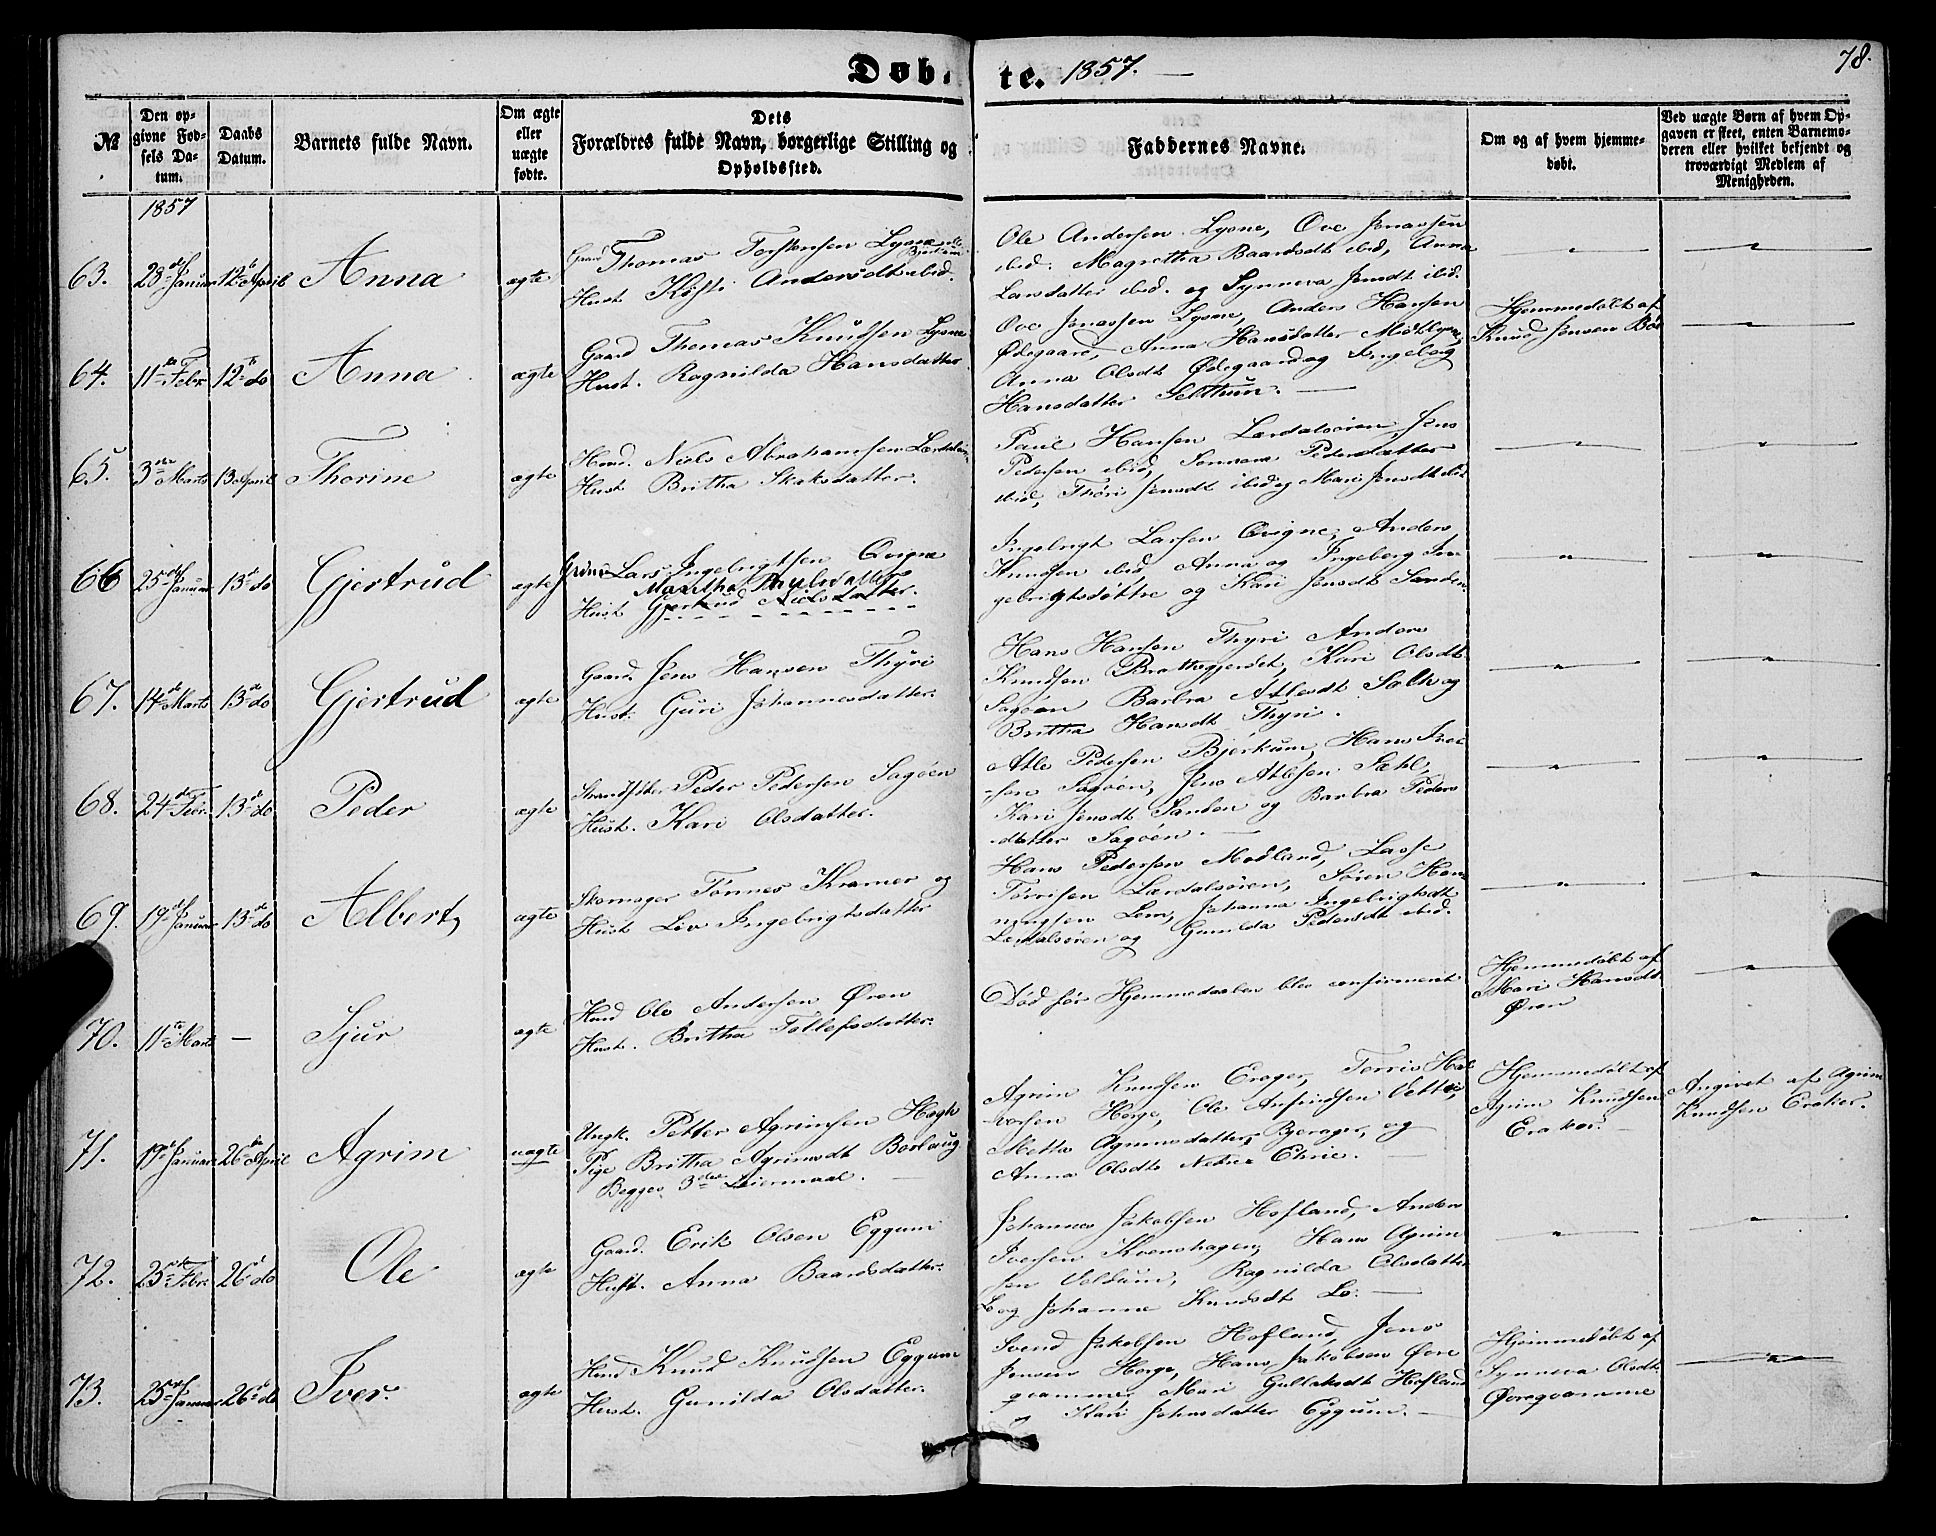 Døb-
te. 1857. —
78.
№
Den op-
givne Fød-
sels Da-
tum.
Daabs
Datum.
Barnets fulde Navn.
Om ægte
eller
uægte
fødte.
Dets
Forældres fulde Navn, borgerlige Stilling og
Opholdssted.
Faddernes Navne.
Om og af hvem hjemme-
døbt.
Ved uægte Børn af hvem Op-
gaven er skeet, enten Barnemo-
deren eller hvilket bekjendt og
troværdigt Medlem af
Menigheden.
1857
63. 28de Januar 12te April Anna ægte
Gaard Thomas Torstensen Lysne
Hust. Andersdt ibid.
Ole Andersen Lysne, Ove Jonassen
ibid. Magretha Baardsdt ibid, Anna
Larsdatter ibid. og Synneva Jensdt ibid.
64. 11te Febr 12te do Anna ægte
Gaard Thomas Knudsen Lysne
Hust. Ragnilda Hansdatter
Ove Jonassen Lysne, Anders Hansen
Ødegaard, Anna Hansdatter Midtlysne,
Anna Olsdt Ødegaard og Ingeborg
Hansdatter Selthun. —
Hjemmedøbt af
Knud Jensen Bøe
65. 3die Marts 13 April Thorine ægte
Huusd. Niels Abrahamsen
Hust Britha Staksdatter.
Poul Hansen Lærdalsøren, Jens
Pedersen ibid, Synneva Pedersdatter
ibid, Thóri Jensdt ibid og Mari Jensdt ibid
66 25de Januar 13de do Gjertrud ægte
Lars Ingebrigtsen Qvigne
Maritha Poulsdatter
Hust Gjertrud Nielsdatter.
Ingebrigt Larsen Qvigne, Anders
Knudsen ibid Anna og Ingeborg In-
gebrigtsdøttre og Kari Jensdt Sanden
67. 14de Marts 13de do Gjertrud ægte
Gaard. Jens Hansen Thyri
Hust. Guri Johannesdatter.
Hans Hansen Thyri Anders
Knudsen Brattegjerdet, Kari Olsdt
Sagøen Barbra Atlesdt Sælh og
Britha Hansdt Thyri.
68. 24de Febr. 13de do Peder ægte
Strandsidder Peder Pedersen Sagøen
Hust. Kari Olsdatter.
Atle Pedersen Bjørkum, Hans Iver
-sen Sagøen, Jens Atlesen Sæhl,
Kari Jensdt Sanden og Barbra Peders
datter Sagøen. —
69. 19de Januar 13de do Albert ægte
Skomager Tønnes Kramer og
Hust Liv Ingebrigtsdatter
Hans Pedersen Modland, Lasse
Tørrisen Lærdalsøren, Søren Hen-
ningsen Lem, Johanna Ingebrigtsdt
Lærdalsøren og Gunilda Pedersdt ibid.
70. 11te Marts — Sjur ægte
Huusd Ole Andersen Øren
Hust. Britha Tollefsdatter.
Død før Hjemmedaaben blev confirmeret
Hjemmedøbt af
Mari Hansdt
Øren
71. 19de Januar 26de April Agrim uægte
Ungk. Petter Agrimsen Hægh
Pige Britha Agrimsdt Borlaug
Begges 3die Leiermaal. —
Agrim Knudsen Eraker, Torris Hal-
vorsen Horge, Ole Anfindsen Vetti,
Metta Agrimsdatter, Bjerager, og
Anna Olsdt Nedre Ehrie. —
Hjemmedøbt af
Agrim Knudsen
Eraker. —
Angivet af Agrim
Knudsen Eraker.
72. 23de Febr. 26de do Ole ægte
Gaard. Erik Olsen Eggum
Hust. Anna Baardsdatter.
Johannes Jakobsen Hofland, Anders
Iversen Kvenshagen, Hans Agrim
sen Veldum, Ragnilda Olsdatter
Lo og Johanne Knudsdt Lo. —
73. 25de Januar 26de do Iver. ægte
Huusd Knud Knudsen Eggum
Hust. Gunilda Olsdatter.
Svend Jakobsen Hofland, Jens
Jensen Horge, Hans Jakobsen Øvre
qvamme Mari Gullaksdt Hofland
og Kari Johnsdatter Eggum. —
Hjemmedøbt af
Synneva Olsdt.
Øvreqvamme